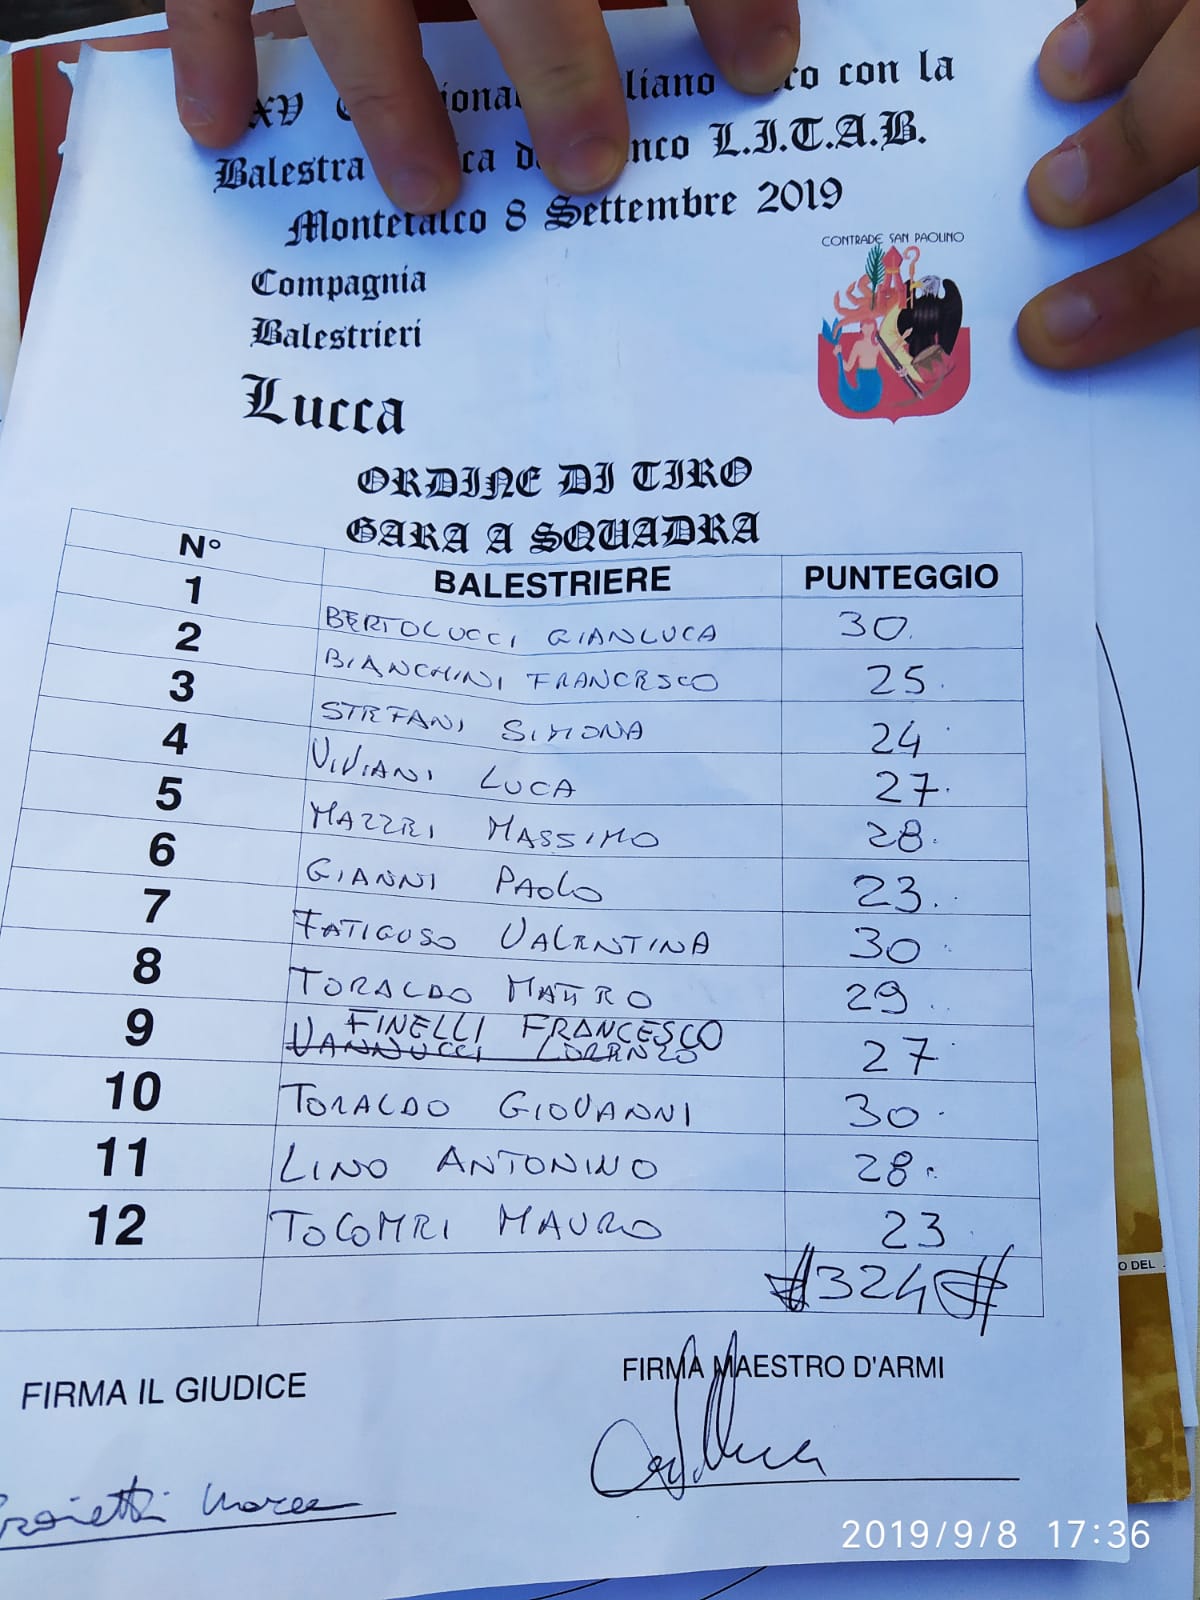 XV liano con la
Balestra L.I.T.A.B.
Montefalco 8 Settembre 2019
CONTRADE SAN PAOLINO
Compagnia
Balestrieri
Lucca
ORDINE DI TIRO
GARA A SQUADRA
N° BALESTRIERE PUNTEGGIO
1 BERTOLUCCI GIANLUCA 30
2 BIANCHINI FRANCESCO 25
3 STEFANI SIMONA 24
4 VIVIANI LUCA 27
5 MAZZEI MASSIMO 28
6 GIANNI PAOLO 23
7 FATIGUSO VALENTINA 30
8 TORALDO MAURO 29
9 FINELLI FRANCESCO 27
VANNUCCI LORENZO
10 TORALDO GIOVANNI 30
11 LINO ANTONINO 28
12 TOCOMEI MAURO 23
#324#
FIRMA IL GIUDICE
FIRMA MAESTRO D'ARMI
O DEL
2019/9/8 17:36